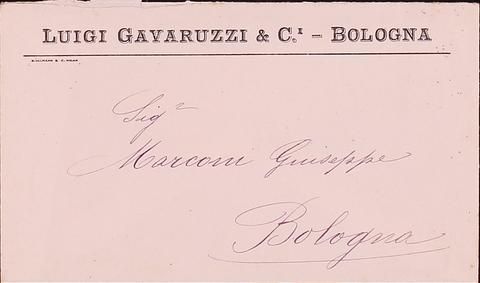 LUIGI GAVARUZZI & C.I – BOLOGNA
Sigr
Marconi Guiseppe
Bologna